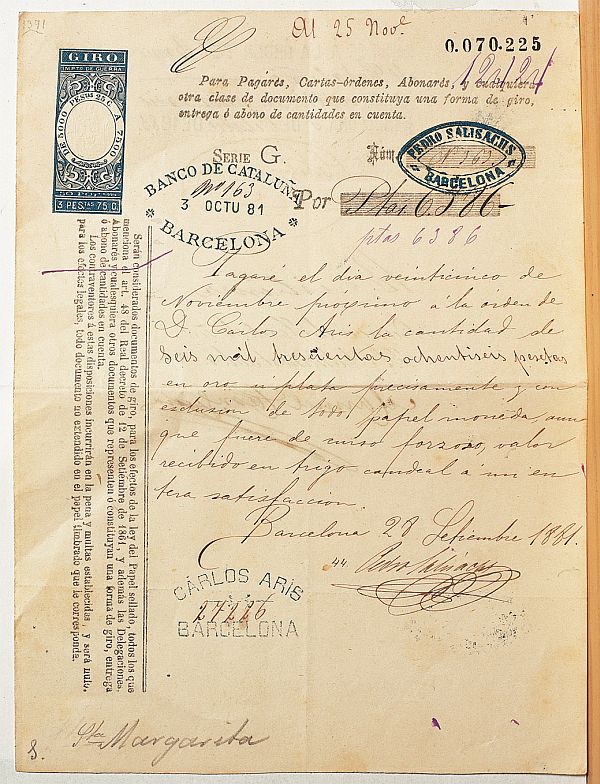 1371
Al 25 Nov.e
0.070.225
GIRO
IMPTO DE GUERRA
PESTAS 25 C.
DE 5000 A 7500
3 PESTAS 75 C.
Para Pagarés, Cartas-órdenes, Abonarés, y cualquiera
otra clase de documento que constituya una forma de giro,
entrega ó abono de cantidades en cuenta.
SERIE G.
Núm
PEDRO SALISACHS
Nº 163
BARCELONA
BANCO DE CATALUÑA
Nº 163
3 OCTU 81
BARCELONA
Por Ptas 6386
ptas 6386
Pagaré el dia veinticinco de
Noviembre proximo á la orden de
D. Carlos Aris la cantidad de
seis mil trescientas ochentiseis pesetas
en oro u plata precisamente y con
esclusion de todo papel moneda aun
que fuere de curso forzoso, valor
recibido en trigo candeal á mi en
tera satisfaccion.
Barcelona 28 Setiembre 1881.
CÁRLOS ARÍS
27226
BARCELONA
Serán considerados documentos de giro, para los efectos de la ley del Papel sellado, todos los que
menciona el art. 48 del Real decreto de 12 de Setiembre de 1861, y además las Delegaciones,
Abonarés y cualesquiera otros documentos que representen ó constituyan una forma de giro, entrega
ó abono de cantidades en cuenta.
Los contraventores á estas disposiciones incurrirán en la pena y multas establecidas, y será nulo,
para los efectos legales, todo documento no extendido en el papel timbrado que le corresponda.
Sta Margarita